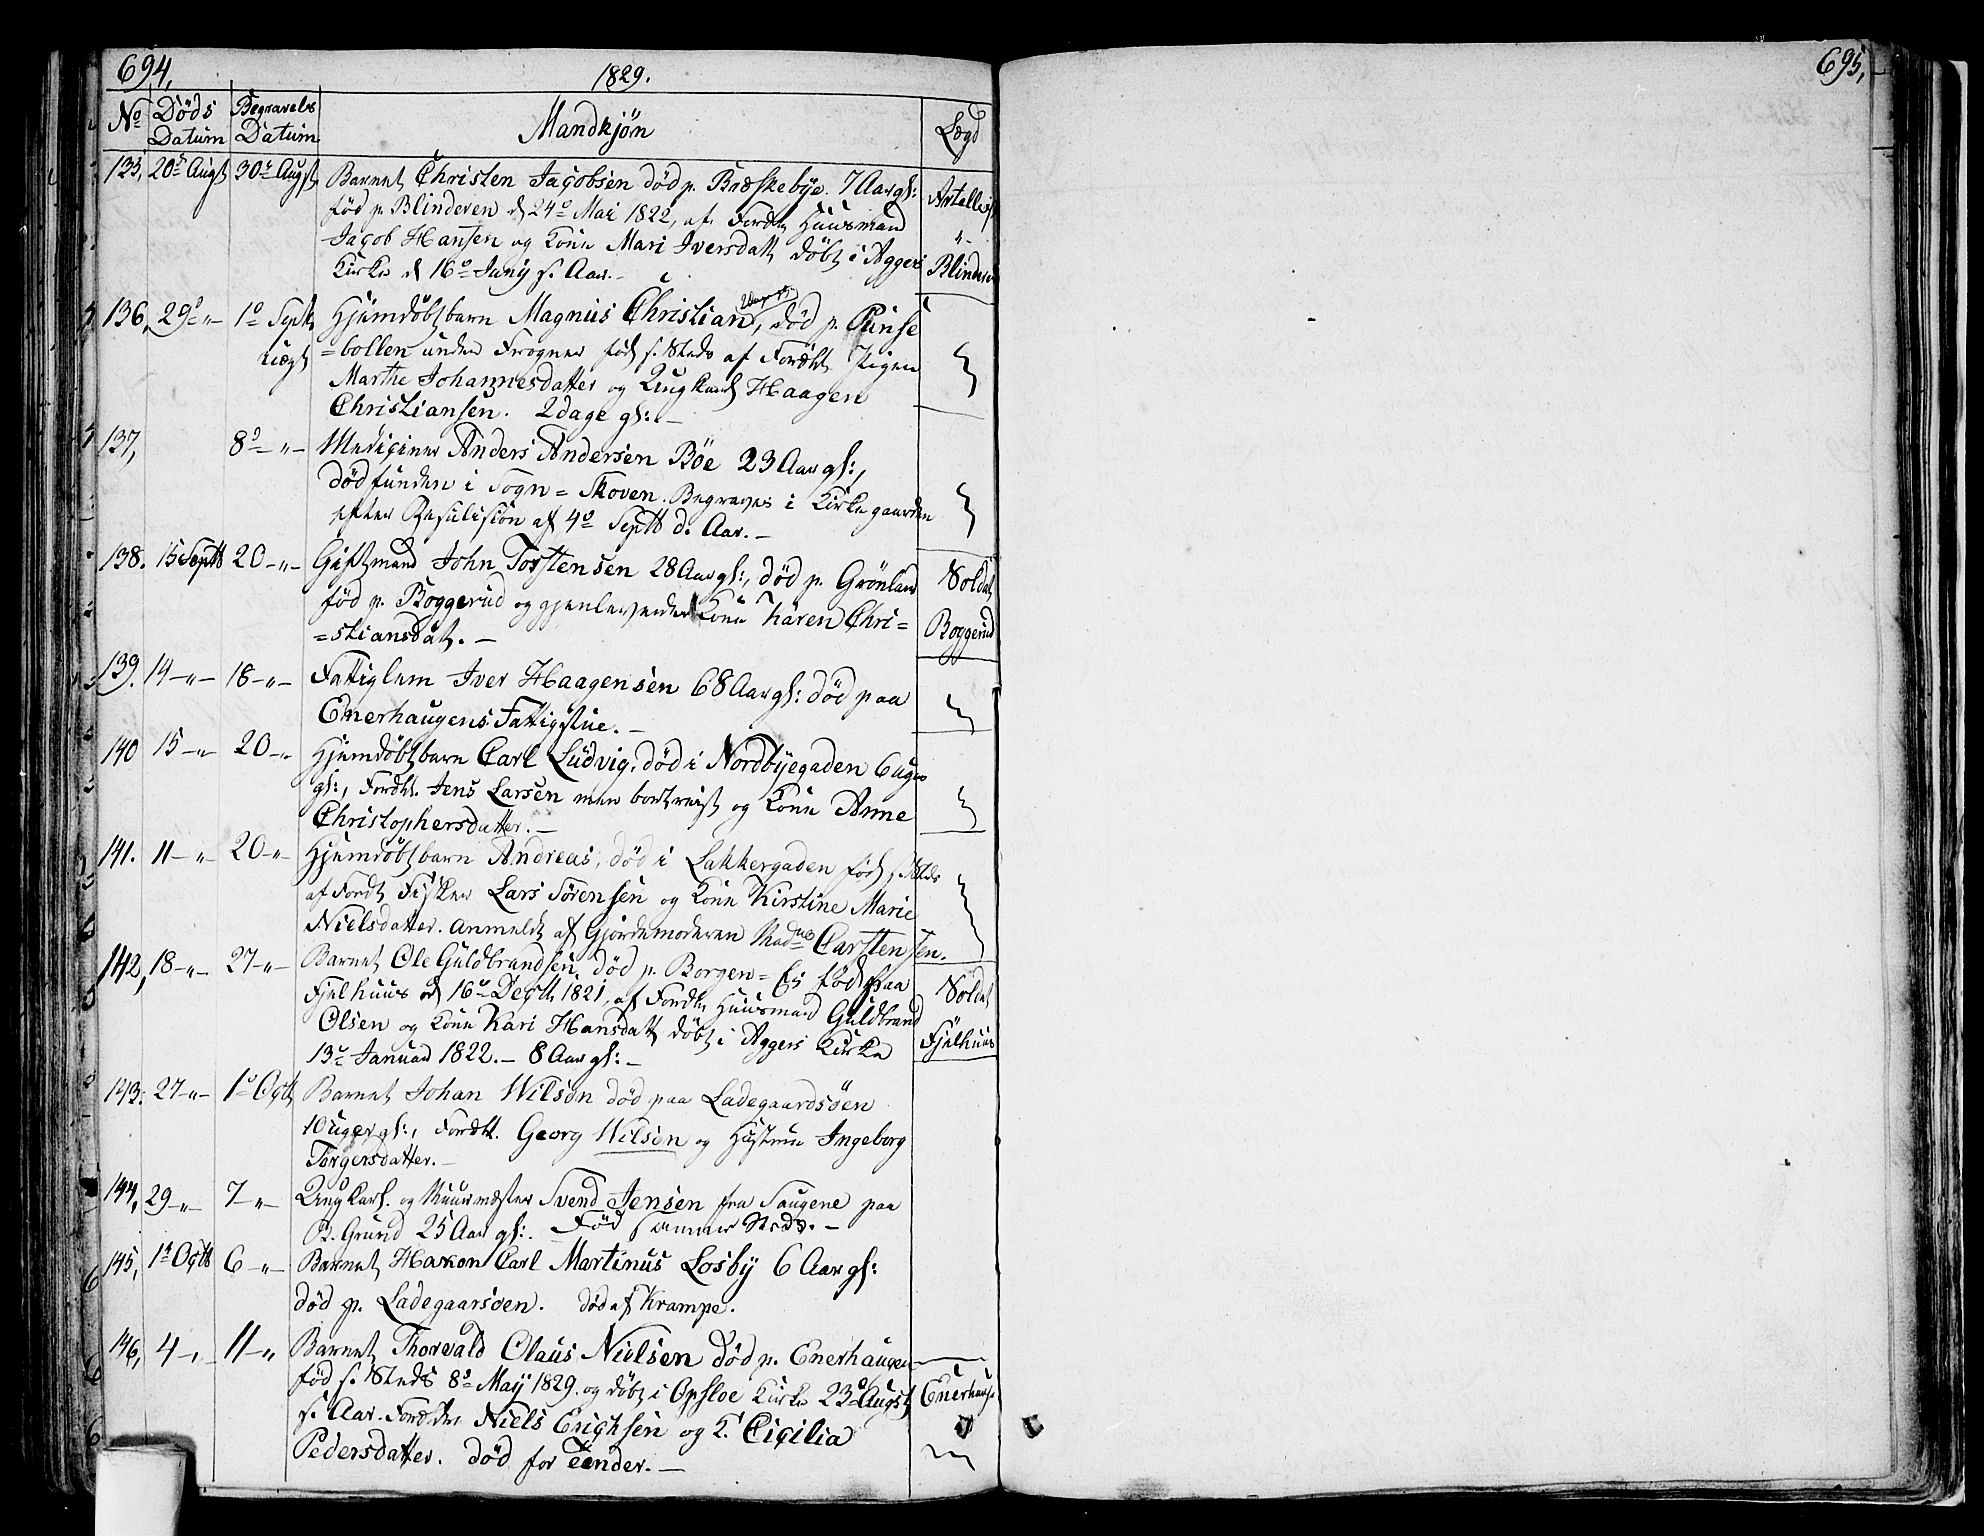 694,
1829.
No Döds Datum Begravels Datum Mandkjön Lægd
135, 20de Augst 30te Augst Barnet Christen Jacobsen død p. Bræskebye. 7 Aar gl:
född p. Blinderen d 24de Mai 1822, af Fordt Huusmand
Jacob Hansen og Kone Mari Iversdatt döbt i Aggers
Kirke d 16de Juny s. Aar.—
Blinderen
136, 29de "— 1de Septb Hjemdöbt barn Magnus Christian, död p. Punse
=bollen under Frogner föd s. Steds af Foræld. Pigen
Marthe Johannesdatter og Ungkarl Haagen
Christiansen. 2 dage gl:.—
137, 8de "— Mediciner Anders Andersen Böe 23 Aar gl:,
död funden i Sogn=Skoven. Begraves i Kirkegaarden
efter Resulision af 4de Septb d. Aar.—
138. 15 Septb 20—"— Gift mand John Torstensen 28 Aar gl:, död p. Grönland Soldat
föd p. Boggerud og gjenlevende Kone Karen Chri= Boggerud
=stiansdat.—
139. 14—"— 18—"— Fattiglem Iver Haagensen 68 Aar gl: död paa
Enerhaugens Fattigstue.—
140 15—" 20—" Hjemdöbt barn Carl Ludvig, död i Nordbyegaden 6 uger
gl:, Fordt. Jens Larsen men bortreist og Kone Anne
Christophersdatter.—
141. 11—"— 20—"— Hjemdöbt barn Andreas, död i Lakkergaden föd s. Steds
af Fordt Fisker Lars Sörensen og Kone Kirstine Marie
Nielsdatter. Anmeldt af Gjordemoderen Madme Carstensen.
142, 18—"— 27—"— Barnet Ole Guldbrandsen, död p. Borgen= Ei föd paa
Fjelhuus d 16de Decbr 1821, af Fordt Huusmand Guldbrand Soldat
Olsen og Kone Kari Hansdatt döbt i Aggers Kirke Fjelhuus
13de Januar 1822.— 8 Aar gl:—
143. 27—"— 1de Octb Barnet Johan Wilson död paa Ladegaardsöen
10 uger gl:, Fordt. Georg Wilson og Hustrue Ingeborg
Torgersdatter.—
144, 29—"— 7—"— Ungkarl. og Muurmester Svend Jensen fra Saugene paa
B. Grund 25 Aar gl:. Föd samme Steds.—
145, 1de Octb 6—"— Barnet Haxon Carl Martinus Losby 6 Aar gl:
död p. Ladegaarsöen. död af Krampe.
146, 4—"— 11—" Barnet Thorvald Olaus Nielsen Död p. Enerhaugen
föd s. Steds 8de May 1829. og döbt i Opsloe Kirke 23de Augst
s. Aar. Forældre Niels Erichsen og K. Cicilia
Pedersdatter. Död for Tænder.—
695,